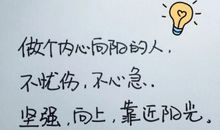 做个内心向阳的人，
不忧伤，不心急.
坚强，向上，靠近阳光。